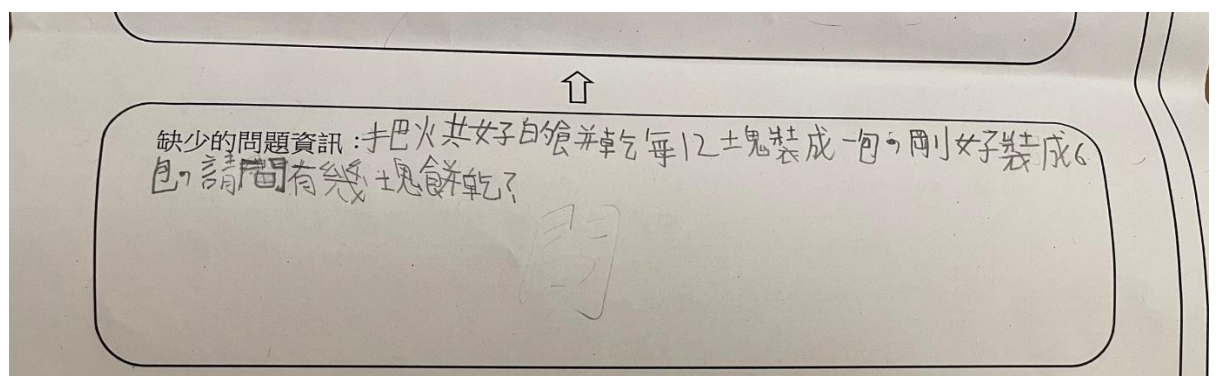 缺少的問題資訊：把烘好的餅乾每12塊裝成一包，剛好裝成6
包，請問有幾塊餅乾？
問